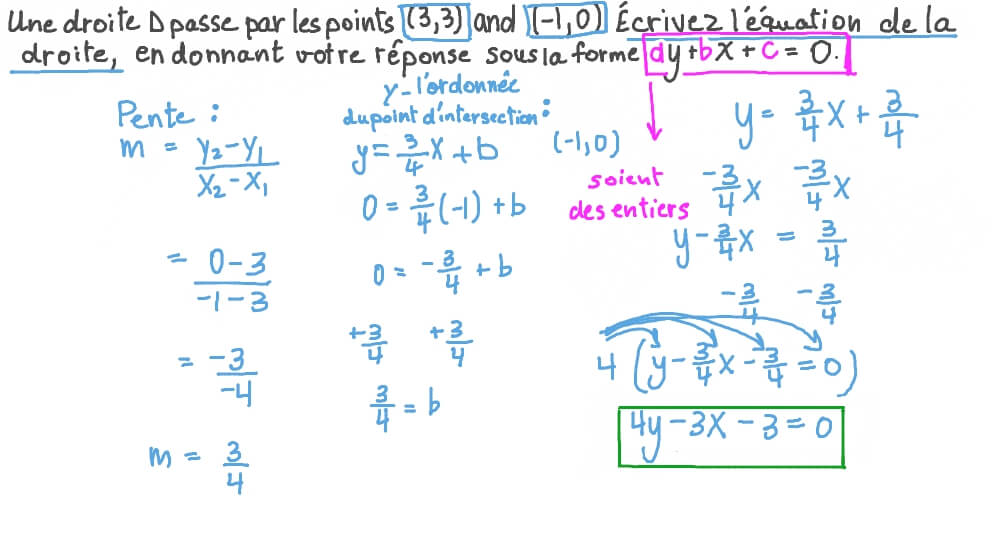 Une droite D passe par les points (3,3) and (-1,0) Écrivez l'équation de la
droite, en donnant votre réponse sous la forme ay+bx+c=0.
Pente :
m = y₂-y₁/x₂-x₁
= 0-3/-1-3
= -3/-4
m = 3/4
y-l'ordonnée
du point d'intersection :
y = 3/4 x + b (-1,0)
0 = 3/4 (-1) + b
0 = -3/4 + b
+3/4 +3/4
3/4 = b
soient
des entiers
y = 3/4 x + 3/4
-3/4 x -3/4 x
y - 3/4 x = 3/4
-3/4 -3/4
4 (y - 3/4 x - 3/4 = 0)
4y - 3x - 3 = 0